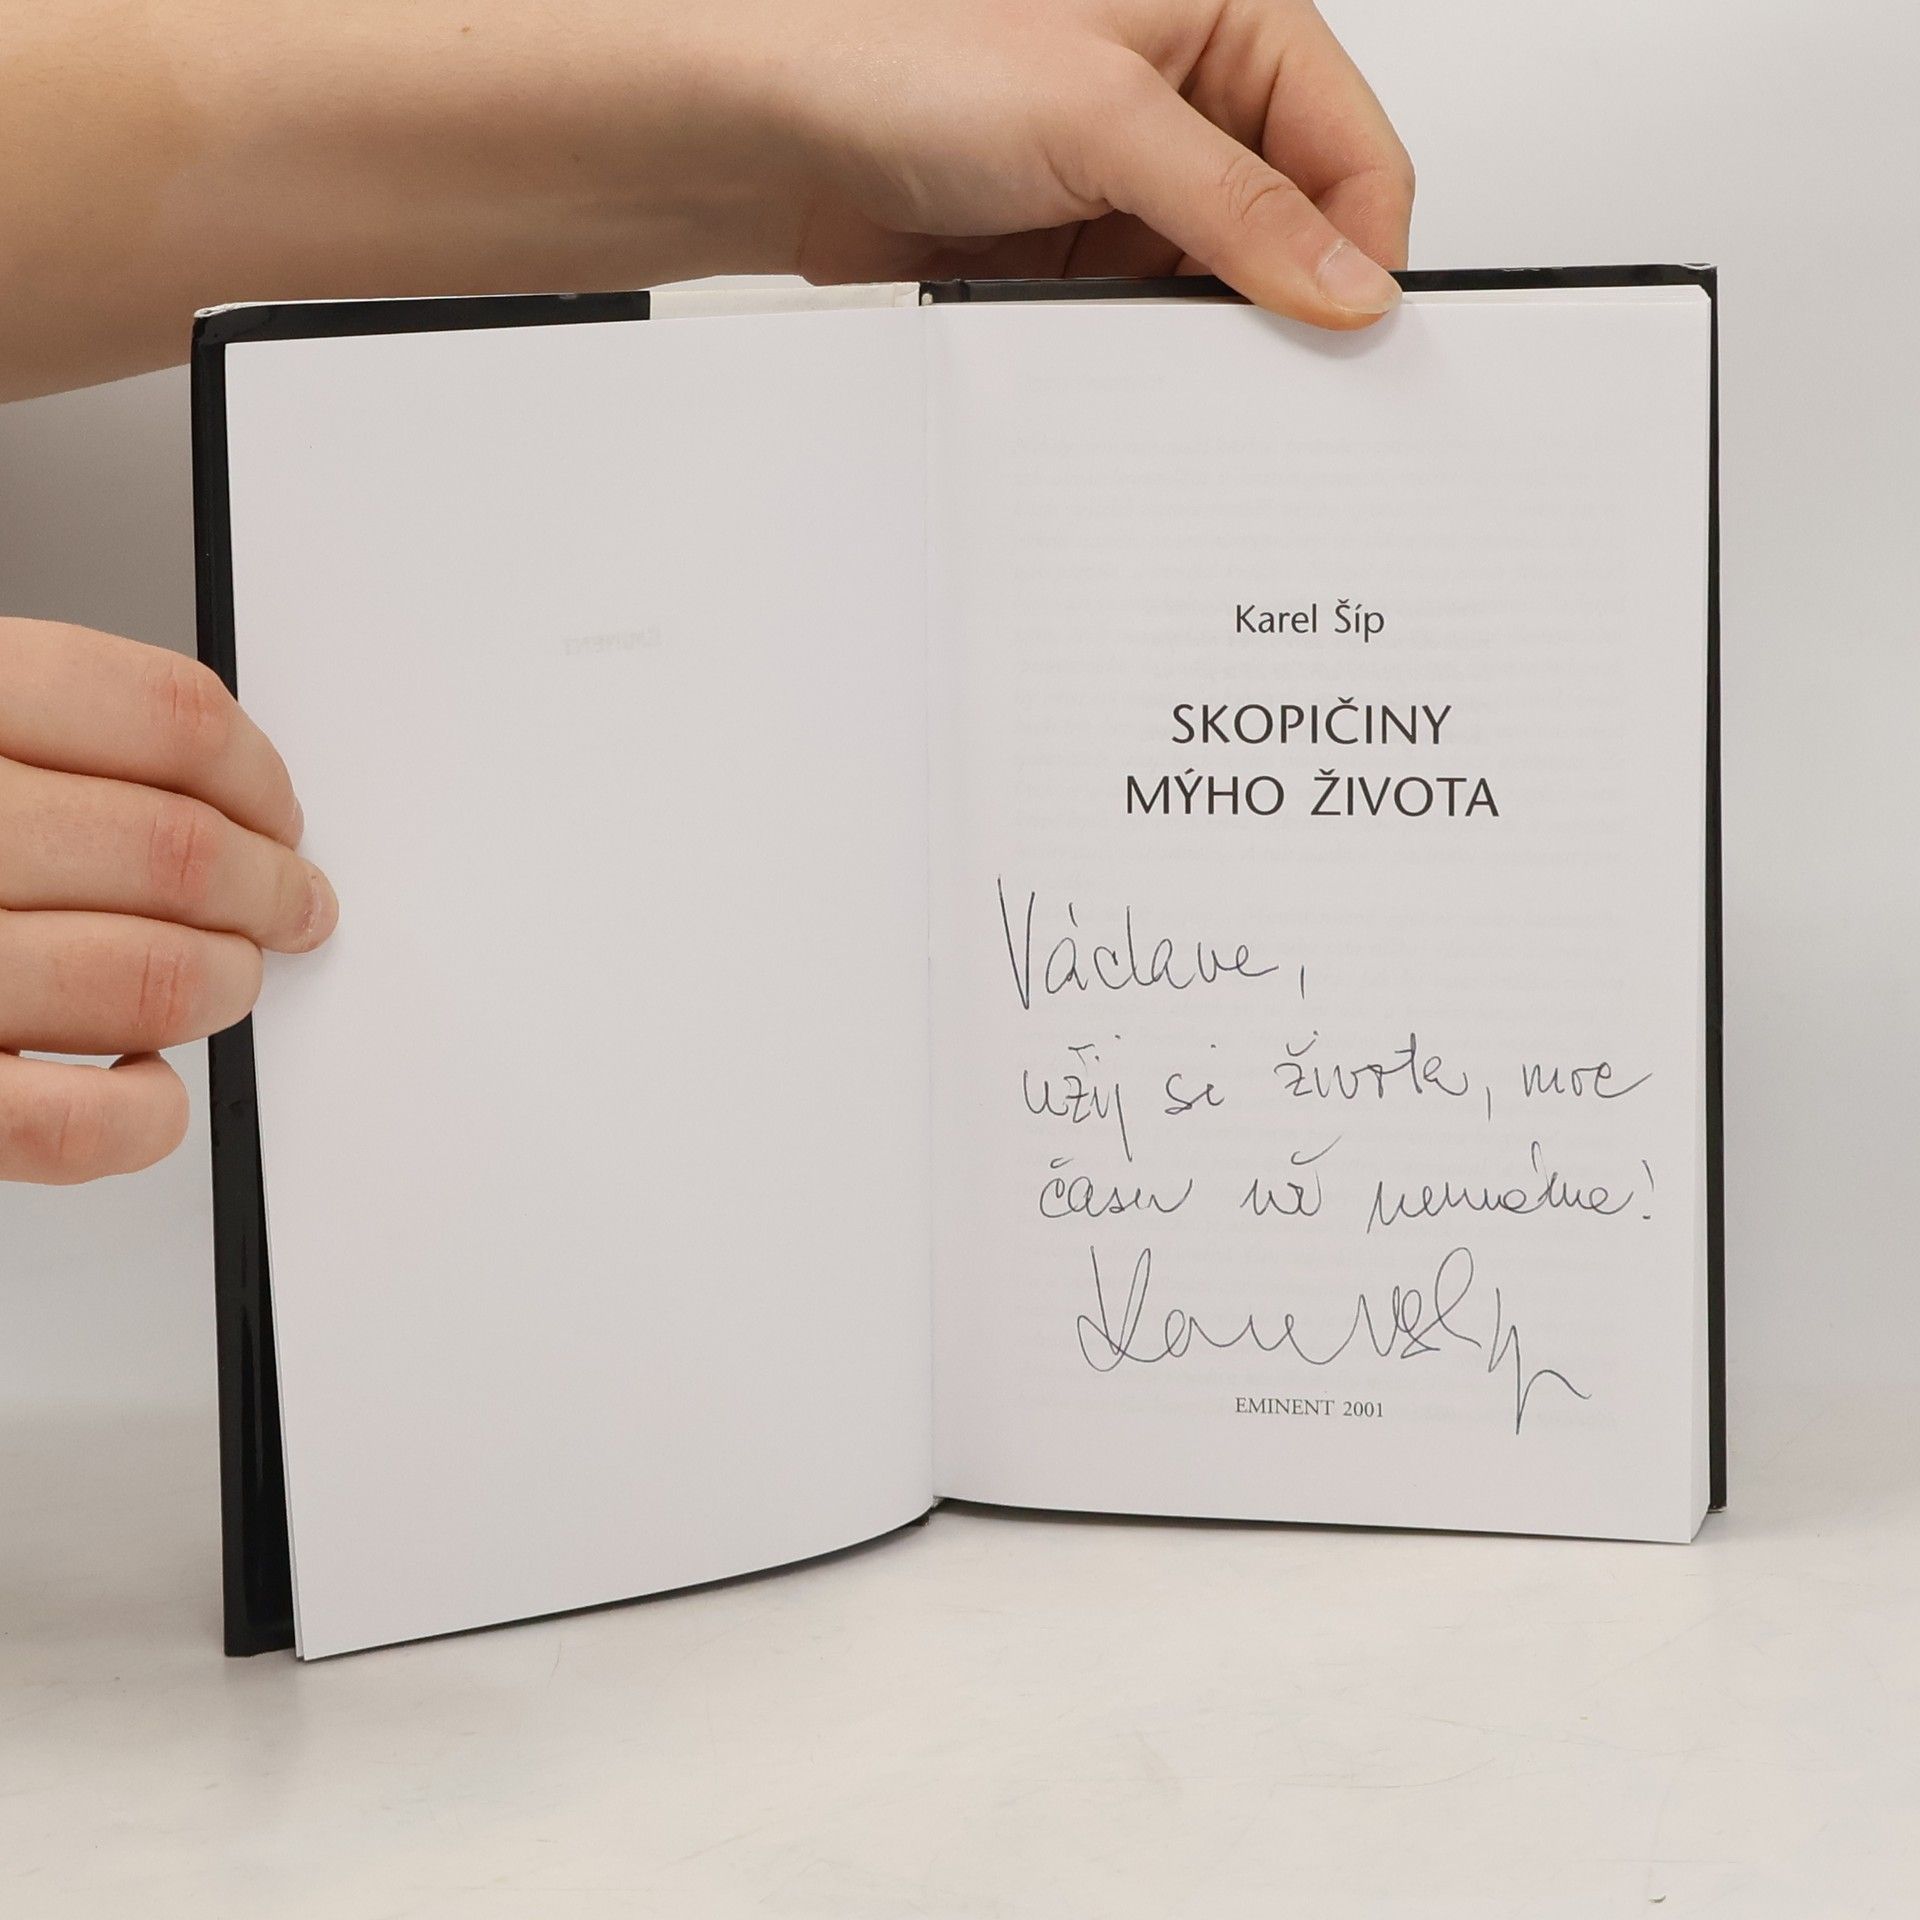 Karel Šíp
SKOPIČINY
MÝHO ŽIVOTA
Václave,
užij si života, moc
času už nemáme!
EMINENT 2001
EMINENT